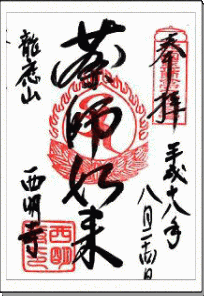 奉拝
平成十八年
八月二十四日
薬師如来
龍応山
西明寺